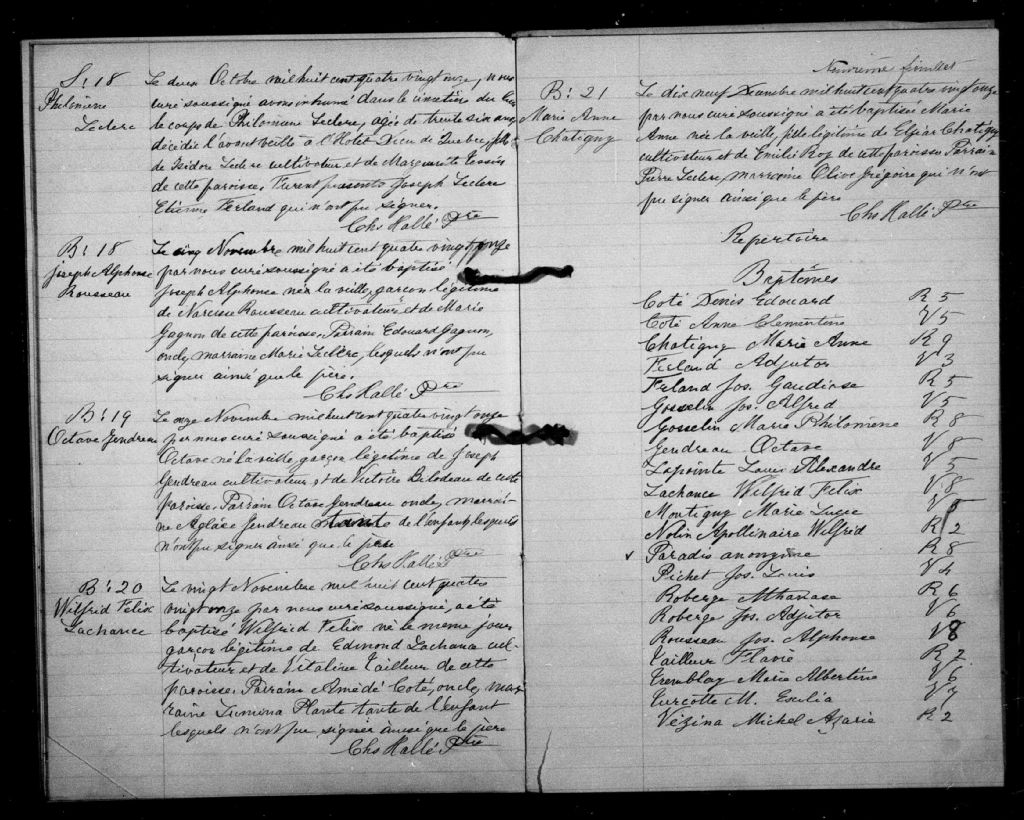 S: 18
Philomène
Leclerc
Le deux Octobre mil huit cent quatre vingt onze, nous
curé soussigné avons inhumé dans le cimetière du lieu
le corps de Philomène Leclerc, agée de trente six ans
décédée l'avant veille à l'Hotel Dieu de Quebec, fille
de Isidore Leclerc cultivateur et de Marguerite
de cette paroisse. Furent présents Joseph Leclerc
Etienne Ferland qui n'ont pu signer.
Chs Hallé Ptre
B: 18
Joseph Alphonse
Rousseau
Le cinq Novembre mil huit cent quatre vingt onze
par nous curé soussigné a été baptisé
Joseph Alphonse né la veille, garçon légitime
de Narcisse Rousseau cultivateur et de Marie
Gagnon de cette paroisse. Parrain Edouard Gagnon,
oncle, marraine Marie Leclerc, lesquels n'ont pu
signer ainsi que le père.
Chs Hallé Ptre
B: 19
Octave Gendreau
Le onze Novembre mil huit cent quatre vingt onze
par nous curé soussigné a été baptisé
Octave né la veille, garçon légitime de Joseph
Gendreau cultivateur et de Victoire Bilodeau de cette
paroisse. Parrain Octave Gendreau oncle, marrai-
ne Aglaée Gendreau tante de l'enfant lesquels
n'ont pu signer ainsi que le père
Chs Hallé Ptre
B: 20
Wilfrid Felix
Lachance
Le vingt Novembre mil huit cent quatre
vingt onze par nous curé soussigné, a été
baptisé Wilfrid Felix né le même jour
garçon légitime de Edmond Lachance cul-
tivateur et de Vitaline Tailleur de cette
paroisse. Parrain Amédé Coté, oncle, mar-
raine Lumina Plante tante de l'enfant
lesquels n'ont pu signer ainsi que le père
Chs Hallé Ptre
Neuvieme feuillet
B: 21
Marie Anne
Chatigny
Le dix neuf Decembre mil huit cent quatre vingt onze
par nous curé soussigné a été baptisée Marie
Anne née la veille, fille légitime de Elzéar Chatigny
cultivateur et de Emilie Roy de cette paroisse Parrain
Pierre Leclerc, marraine Olive Grégoire qui n'ont
pu signer ainsi que le père
Chs Hallé Ptre
Repertoire
Baptêmes
Coté Denis Edouard R 5
Coté Anne Clementine V 5
Chatigny Marie Anne R 9
Ferland Adjutor V 3
Ferland Jos. Gaudiose R 5
Gosselin Jos. Alfred V 5
Gosselin Marie Philomène R 8
Gendreau Octave V 8
Lapointe Louis Alexandre V 5
Lachance Wilfrid Felix V 8
Montigny Marie Lucie V 5
Nolin Apollinaire Wilfrid R 2
v Paradis anonyme R 8
Pichet Jos. Louis V 4
Roberge Athanase R 6
Roberge Jos. Adjutor V 6
Rousseau Jos. Alphonse V 8
Tailleur Flavie R 7
Tremblay Marie Albertine V 6
Turcotte M. Exelia V 7
Vézina Michel Azarie R 2